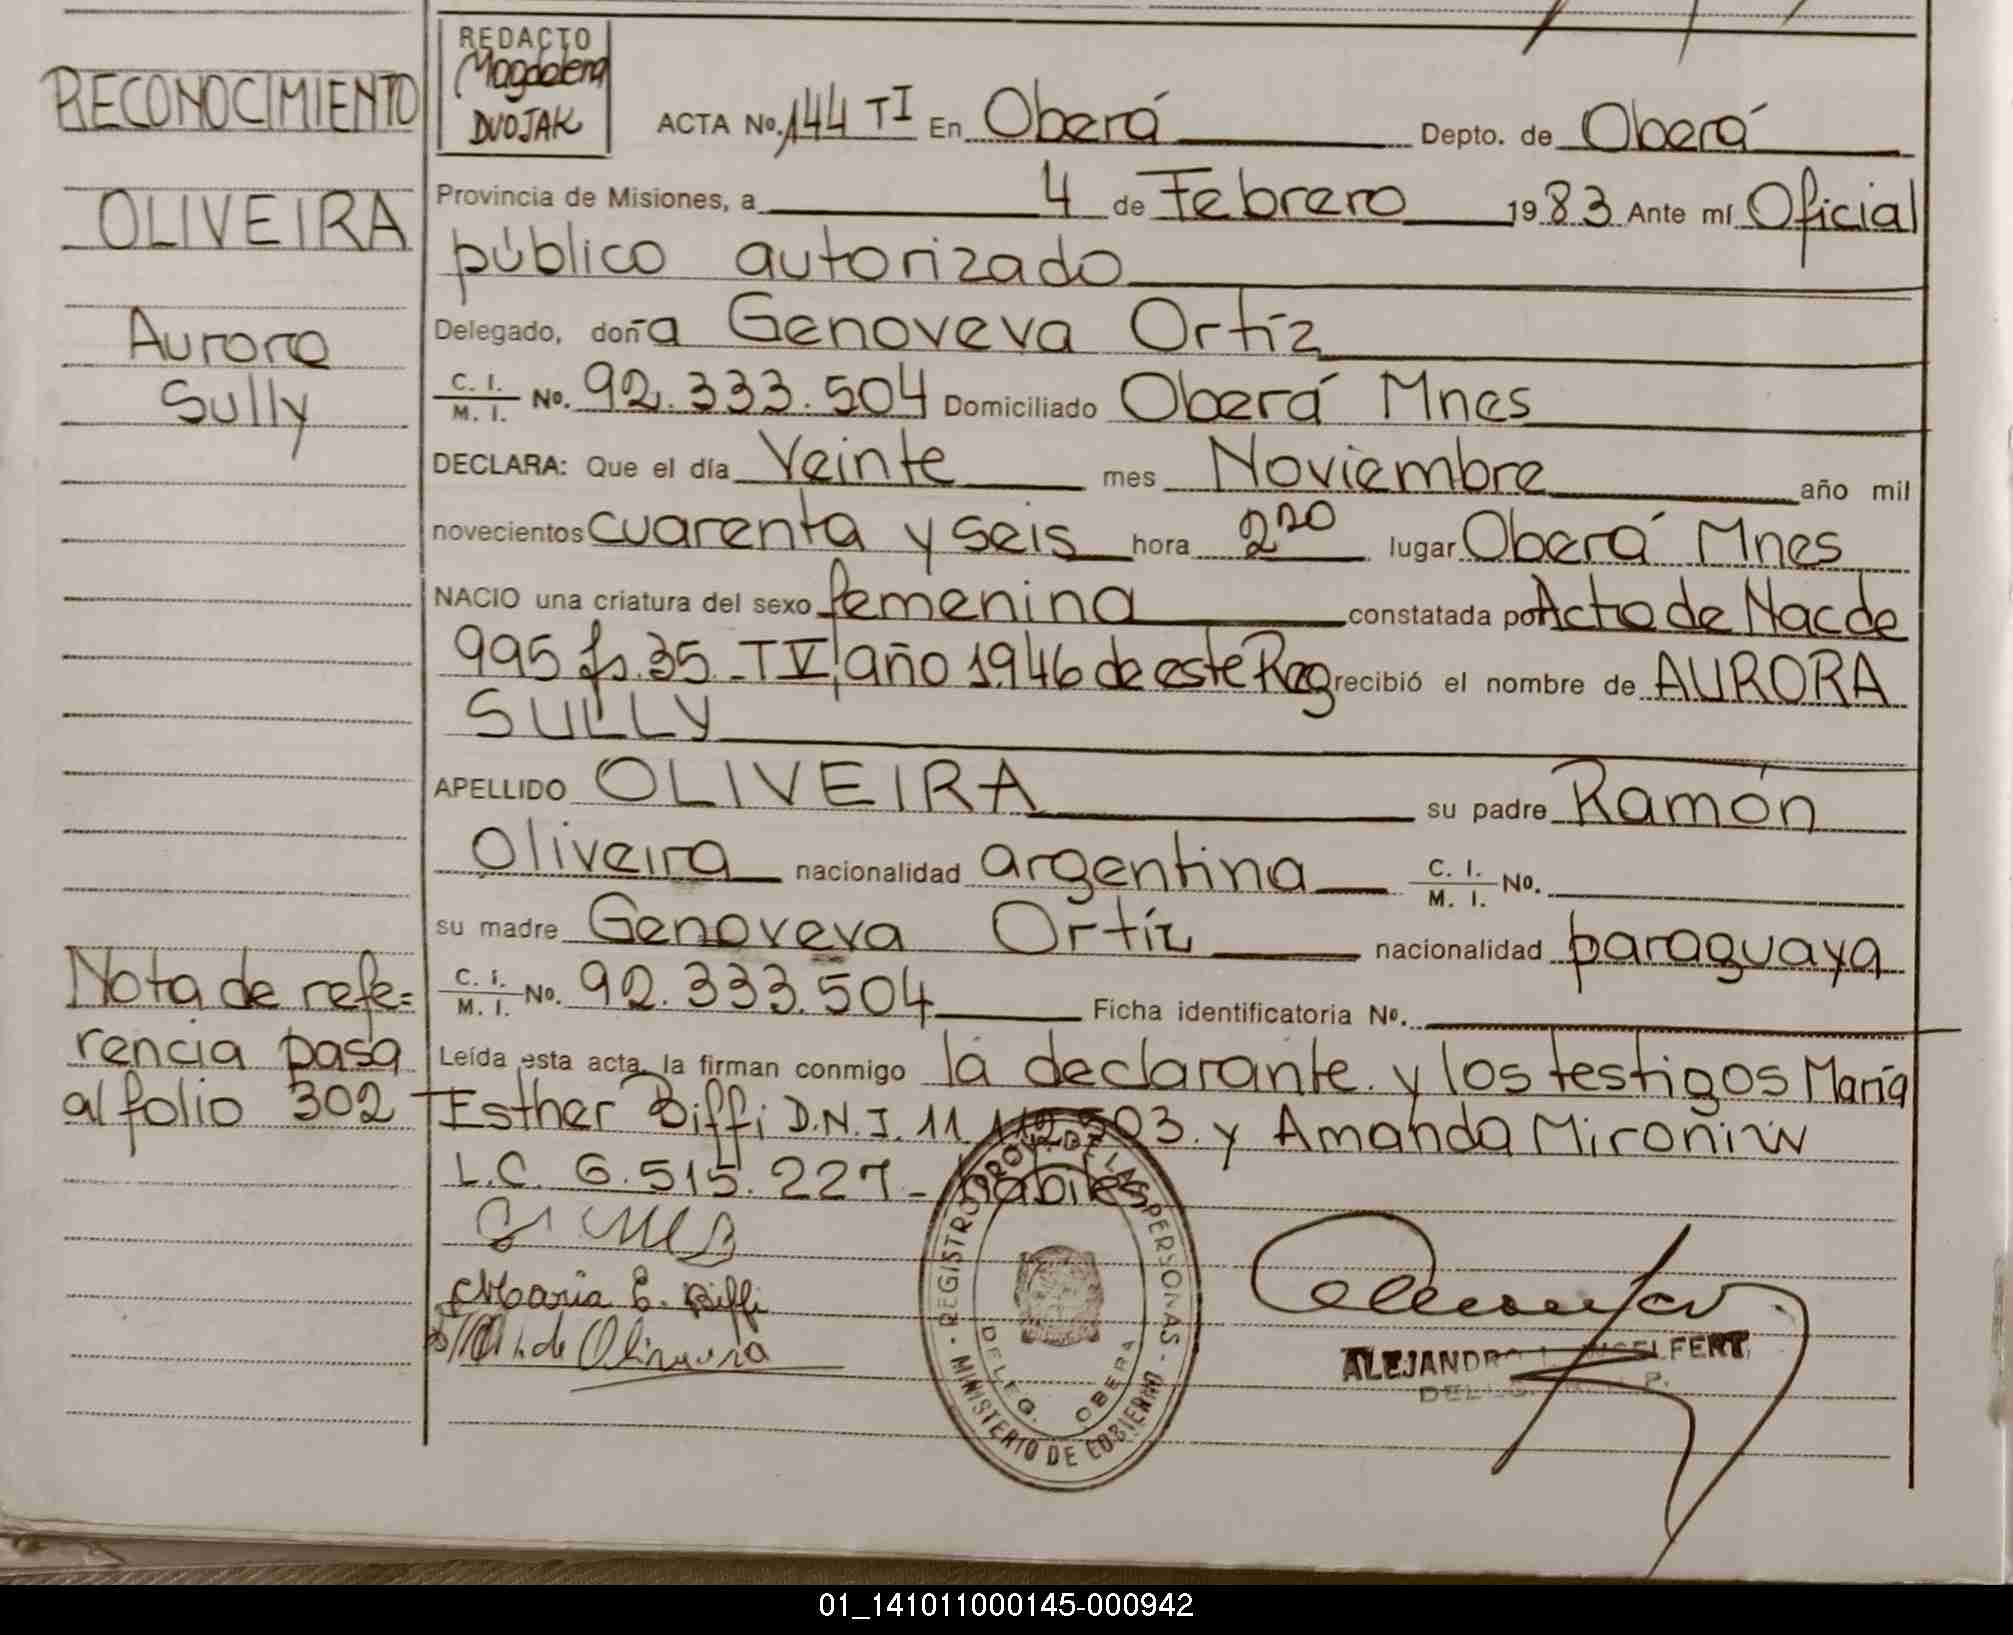 RECONOCIMIENTO
OLIVEIRA
Aurora
Sully
Nota de refe=
rencia pasa
al folio 302
REDACTO
Magdalena
DUOJAK
ACTA No. 144 TI En Oberá Depto. de Oberá
Provincia de Misiones, a 4 de Febrero 1983 Ante mí Oficial
público autorizado
Delegado, doña Genoveva Ortíz
C. I. / M. I. No. 92.333.504 Domiciliado Oberá Mnes
DECLARA: Que el día Veinte mes Noviembre año mil
novecientos cuarenta y seis hora 2 20 lugar Oberá Mnes
NACIO una criatura del sexo femenina constatada por Acta de Nac de
995 fs. 35 TV, año 1.946 de este Reg recibió el nombre de AURORA
SULLY
APELLIDO OLIVEIRA su padre Ramón
Oliveira nacionalidad argentina C. I. / M. I. No.
su madre Genoveva Ortíz nacionalidad paraguaya
C. I. / M. I. No. 92.333.504 Ficha identificatoria No.
Leída esta acta, la firman conmigo la declarante y los testigos María
Esther Biffi D.N.I. 11.112.503. y Amanda Mironiuk
L.C. 6.515.227 - habiles
María E. Biffi
de Oliveira
REGISTRO PROV. DE LAS PERSONAS - MINISTERIO DE GOBIERNO -
DELEG. OBERA
ALEJANDRO
01_141011000145-000942